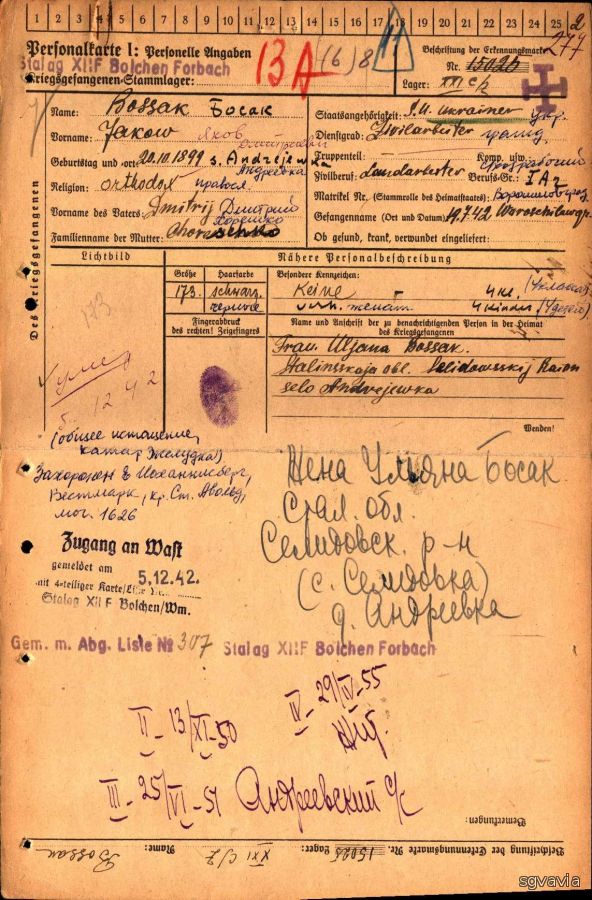 1 2 3 4 5 6 7 8 9 10 11 12 13 14 15 16 17 18 19 20 21 22 23 24 25
2
277
Personalkarte I: Personelle Angaben
Stalag XIIF Bolchen Forbach
Kriegsgefangenen-Stammlager:
13A
(6) 8
11
Beschriftung der Erkennungsmarke
Nr. 15025
Lager: XXI C/2
Des Kriegsgefangenen
Name: Bossak Босак
Vorname: Jakow Яков Дмитриевич
Geburtstag und -ort: 20.10.1899 s. Andrejewka
Андреевка
Religion: orthodox правосл.
Vorname des Vaters: Dmitrij Дмитрий
Familienname der Mutter:
Staatsangehörigkeit: S.U. Ukrainer укр.
Dienstgrad: Zivilarbeiter гражд.
Truppenteil: Komp. usw.:
Zivilberuf: Landarbeiter Berufs-Gr.: I A2
Matrikel Nr. (Stammrolle des Heimatstaates):
Gefangenname (Ort und Datum): 19.7.42
Ob gesund, krank, verwundet eingeliefert:
Lichtbild
Nähere Personalbeschreibung
Größe Haarfarbe Besondere Kennzeichen:
173. schwarz. Keine 4 kl. (4 класса)
черные женат 4 kinder (4 детей)
Fingerabdruck
des rechten! Zeigefingers
Name und Anschrift der zu benachrichtigenden Person in der Heimat
des Kriegsgefangenen
Frau Uljana Bossak.
Stalinskaja obl. Selidowsskij Raion
selo Andrejewka
Wenden!
173
умер
5. 12. 42
(общее истощение,
катар желудка)
Захоронен в Иоханнисберг,
Вестмарк, кр. Ст. Авольд,
мог. 1626
Жена Ульяна Босак
Стал. обл.
Селидовск. р-н
(с. Селидовка)
д. Андреевка
Zugang an Wast
gemeldet am 5.12.42.
mit 4-teiliger Karte/
Stalag XII F Bolchen/Wm.
Gem. m. Abg. Liste № 307 Stalag XIIF Bolchen Forbach
II - 13/XI-50
IV - 29/IV-55
III - 25/VI-51 Андреевский с/с
Bemerkungen:
Beschriftung der Erkennungsmarke Nr. 15025 Lager: XXI C/2 Name: Bossak
sgvavia